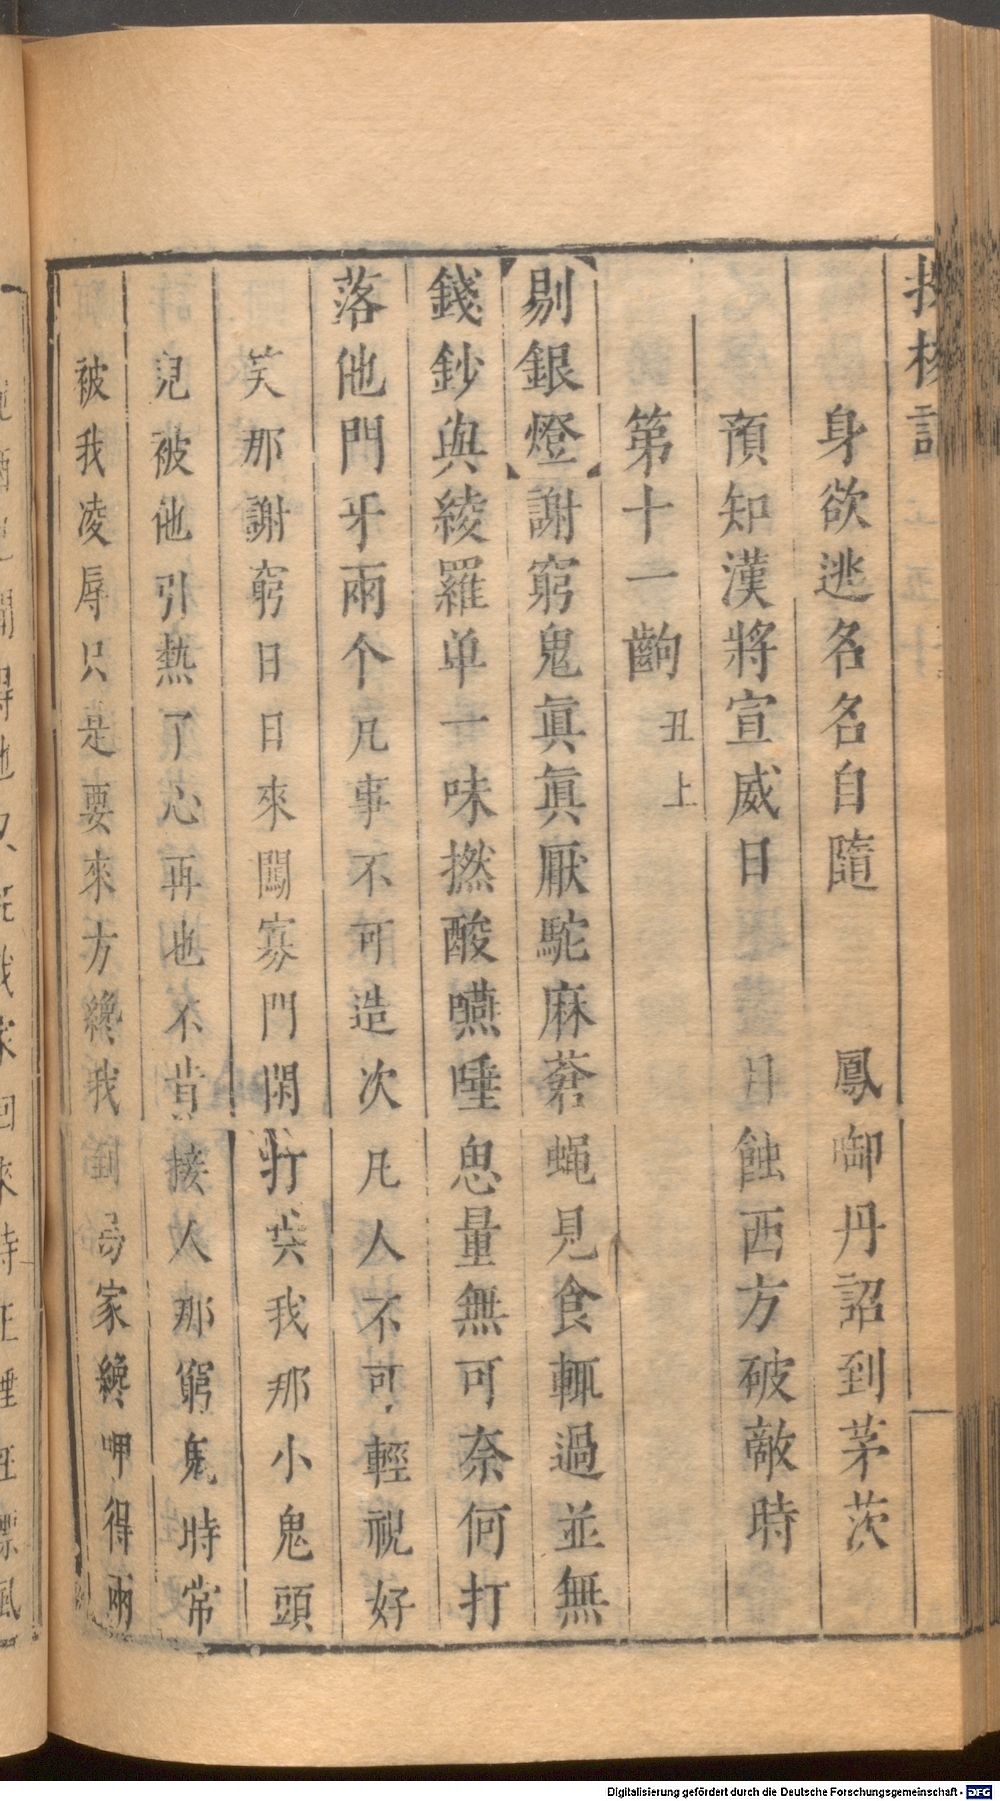 投梭記
身欲逃名名自隨　鳳啣丹詔到茅茨
預知漢將宣威日　蝕西方破敵時
第十一齣 丑上
【剔銀燈】謝窮鬼眞眞厭駝麻蒼蠅見食輒過並無
錢鈔與綾羅单一味撚酸嚥唾思量無可奈何打
落他門牙兩个凡事不可造次凡人不可輕視好
笑那謝窮日日來闖寡門閑打㗳我那小鬼頭
兒被他引熱了心再也不肯接人那窮鬼時常
被我凌辱只是要來方纔我到馮家纔呷得兩
Digitalisierung gefördert durch die Deutsche Forschungsgemeinschaft - DFG